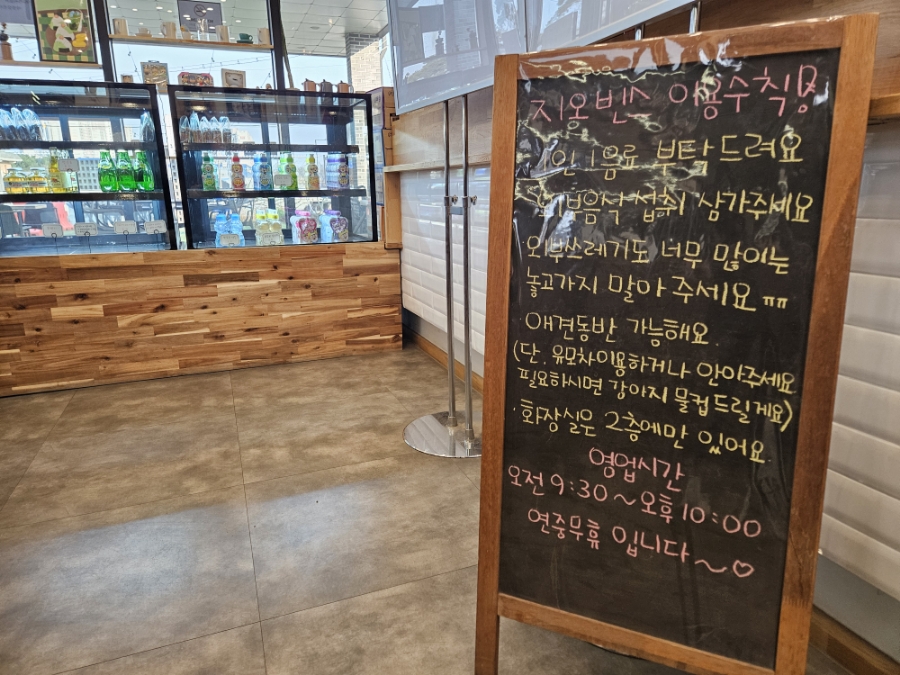 지오빈스 이용수칙
1인 1음료 부탁드려요
외부음식 섭취 삼가주세요
외부쓰레기도 너무 많이는
놓고가지 말아주세요ㅠㅠ
· 애견동반 가능해요.
(단. 유모차이용하거나 안아주세요
필요하시면 강아지 물컵드릴게요)
· 화장실은 2층에만 있어요.
영업시간
오전 9:30 ~ 오후 10:00
연중무휴 입니다~♡